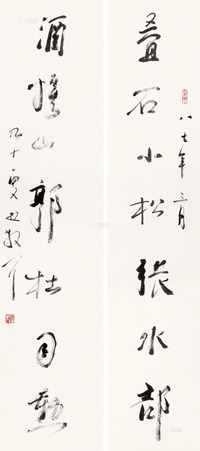 叠石小松张水部
八七年三月
酒旗山郭杜司勋
九十叟赵敬予